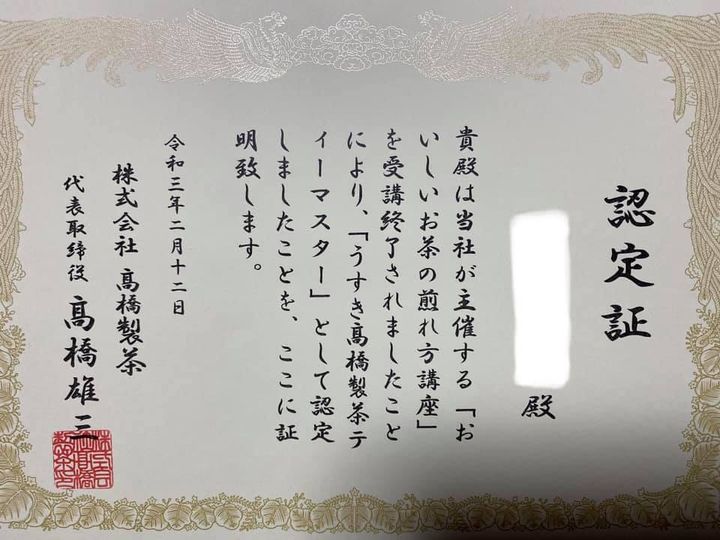 認定証
殿
貴殿は当社が主催する「お
いしいお茶の煎れ方講座」
を受講終了されましたこと
により、「うすき髙橋製茶テ
ィーマスター」として認定
しましたことを、ここに証
明致します。
令和三年二月十二日
株式会社 髙橋製茶
代表取締役 髙橋雄三